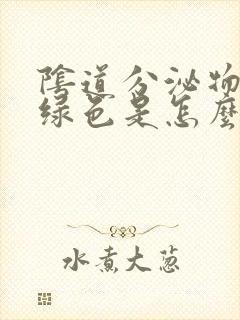 陰道分泌物
綠色是怎麼
水煮大蔥